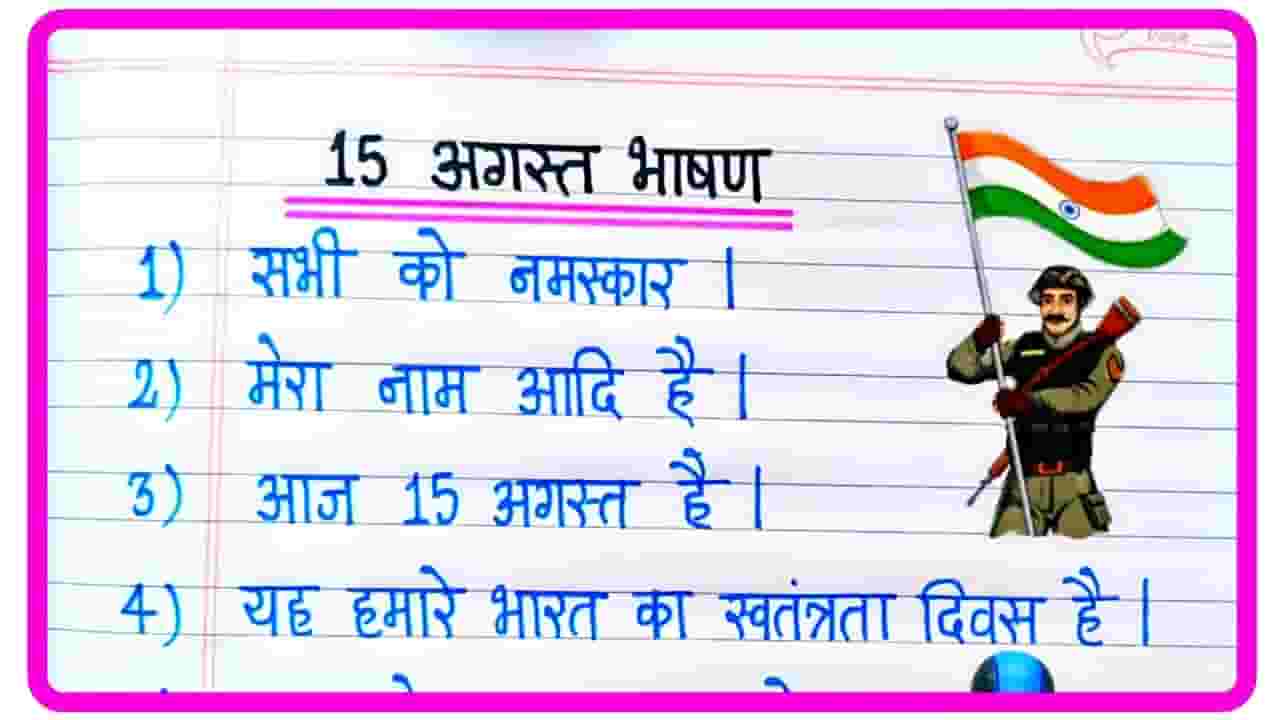 15 अगस्त भाषण
1) सभी को नमस्कार ।
2) मेरा नाम आदि है ।
3) आज 15 अगस्त है ।
4) यह हमारे भारत का स्वतंत्रता दिवस है ।